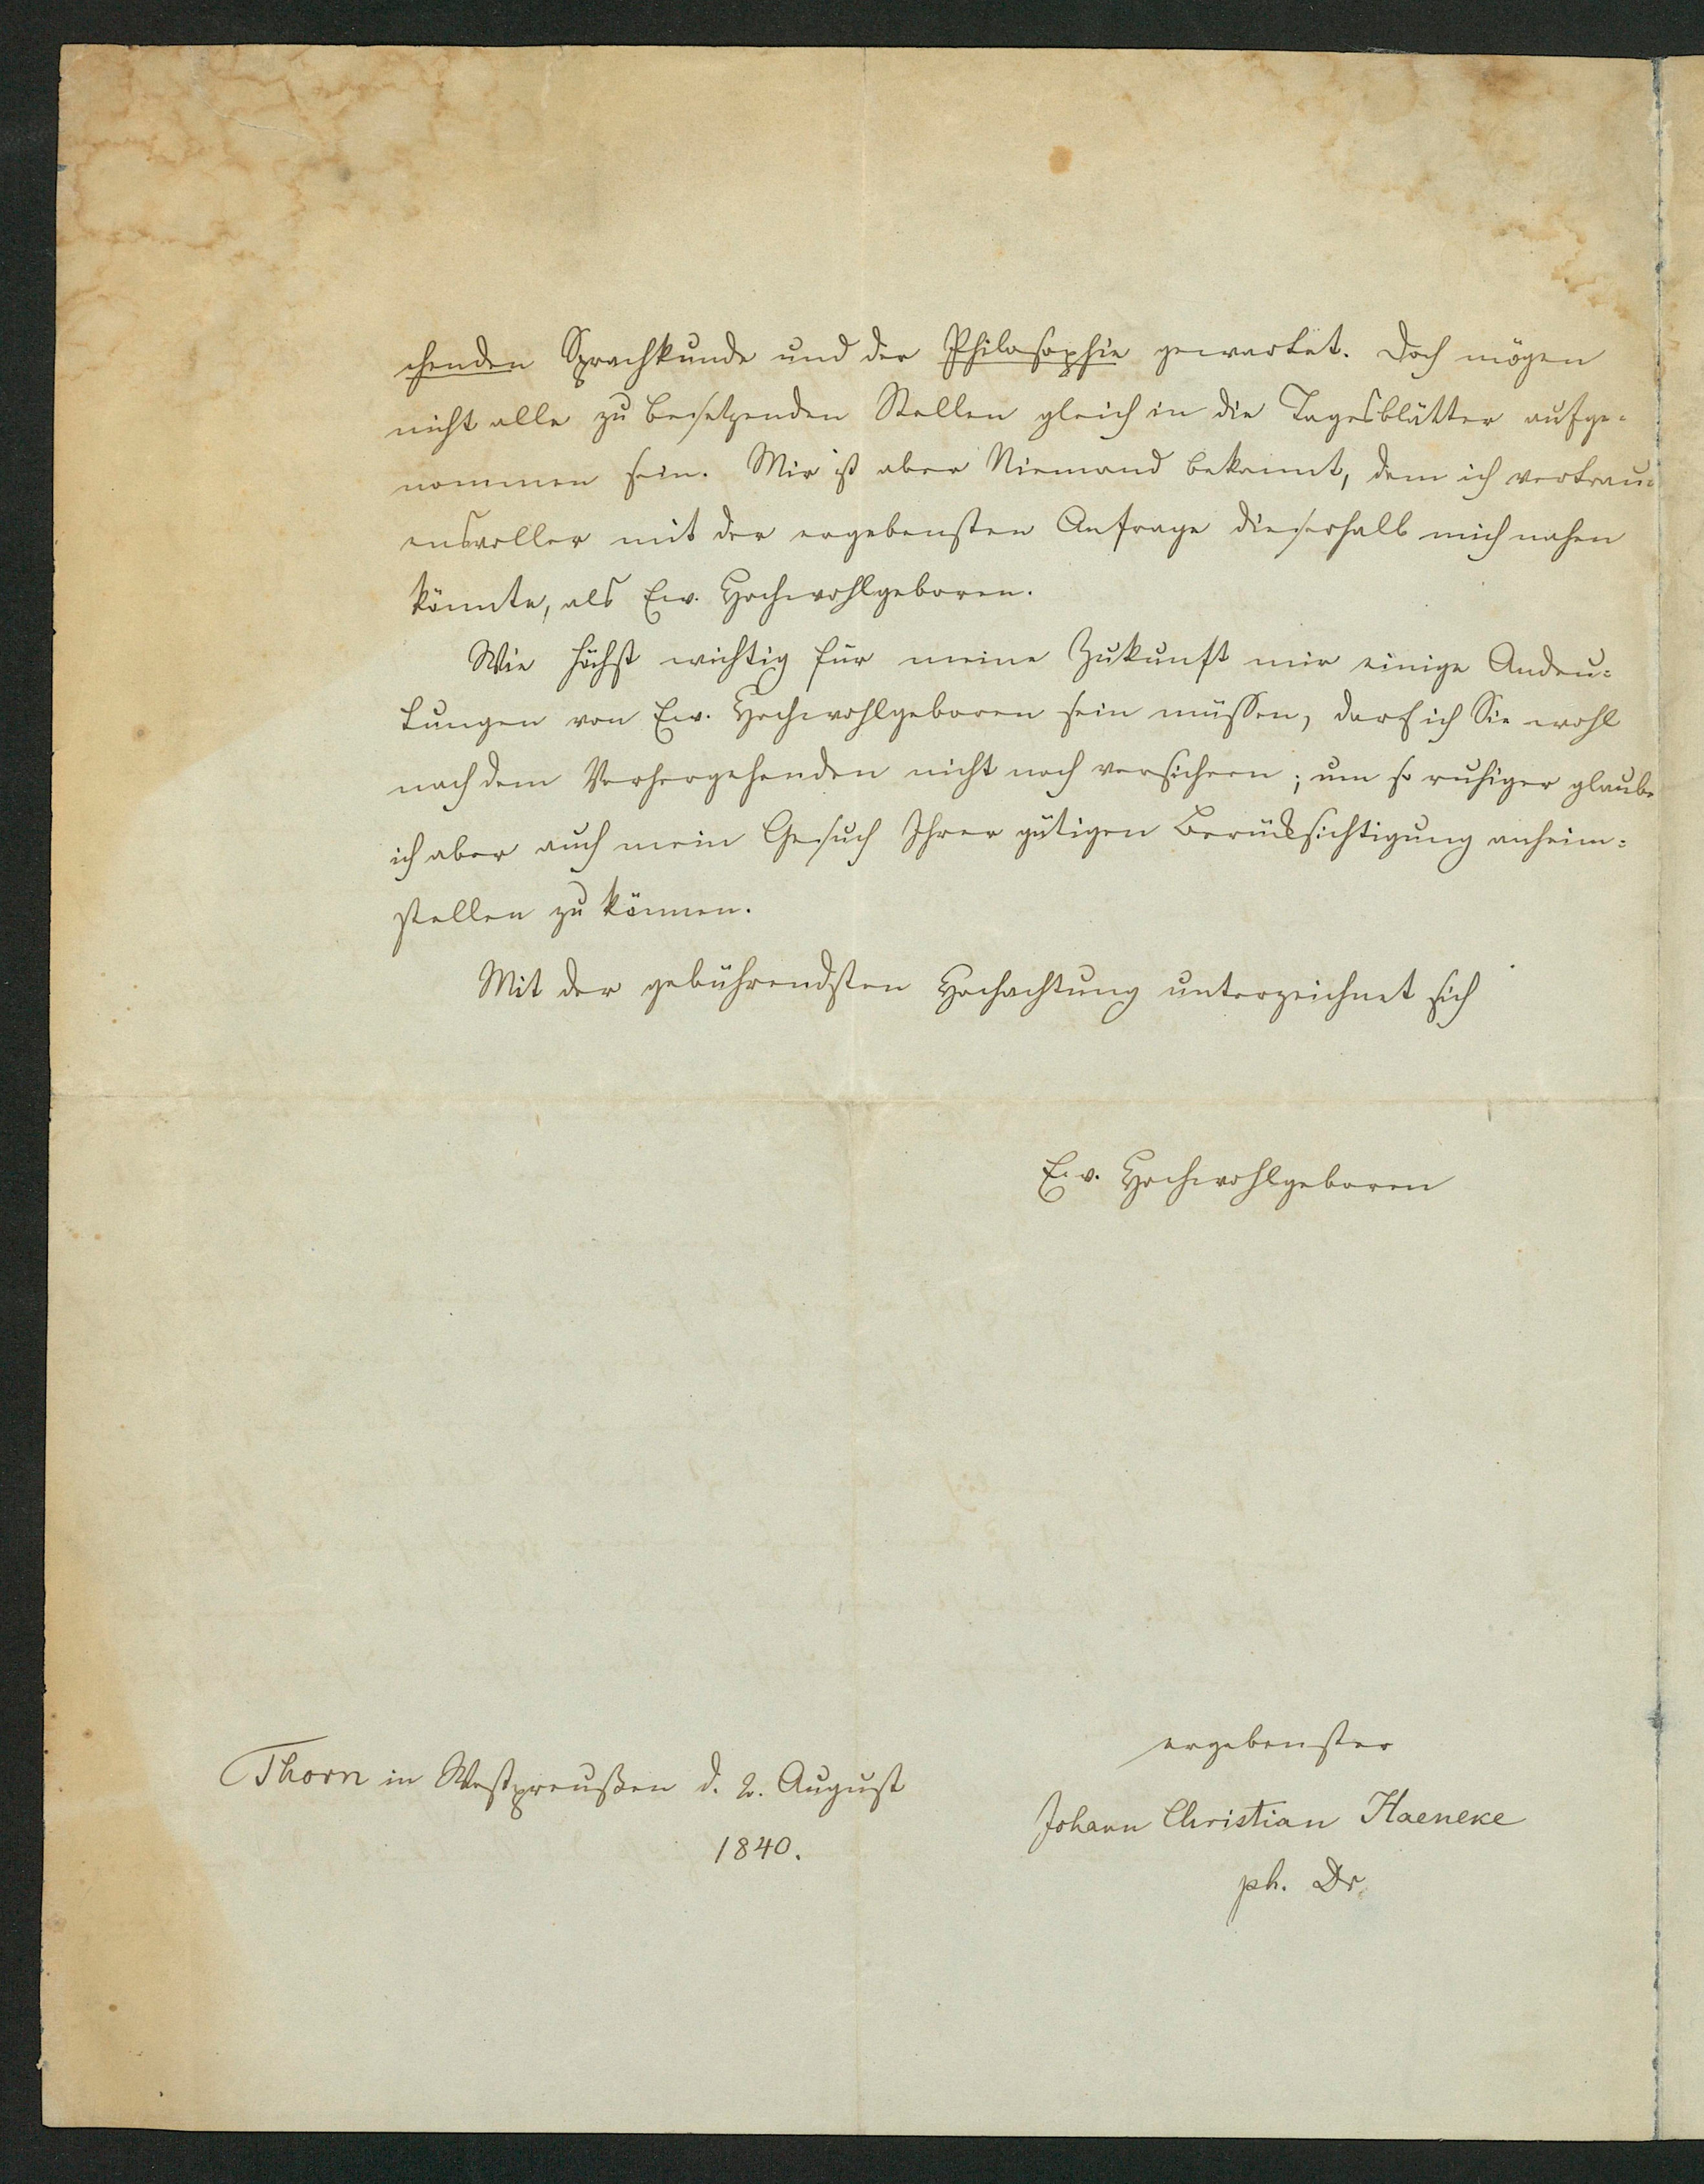 chenden Sprachkunde und der Philosophie gewartet. Doch mögen
nicht alle zu besetzenden Stellen gleich in die Tagesblätter aufge-
nommen sein. Mir ist aber Niemand bekannt, dem ich vertrau-
ensvoller mit der ergebensten Anfrage dieserhalb mich nahen
könnte, als Ew. Hochwohlgeboren.
Wie höchst wichtig für meine Zukunft mir einige Andeu-
tungen von Ew. Hochwohlgeboren sein müssen, darf ich Sie wohl
nach dem Vorhergehenden nicht noch versichern; um so ruhiger glaube
ich aber auch mein Gesuch Ihrer gütigen Berücksichtigung anheim-
stellen zu können.
Mit der gebührendsten Hochachtung unterzeichnet sich
Ew. Hochwohlgeboren
ergebenster
Thorn in Westpreußen d. 2. August
1840.
Johann Christian Haeneke
ph. Dr.